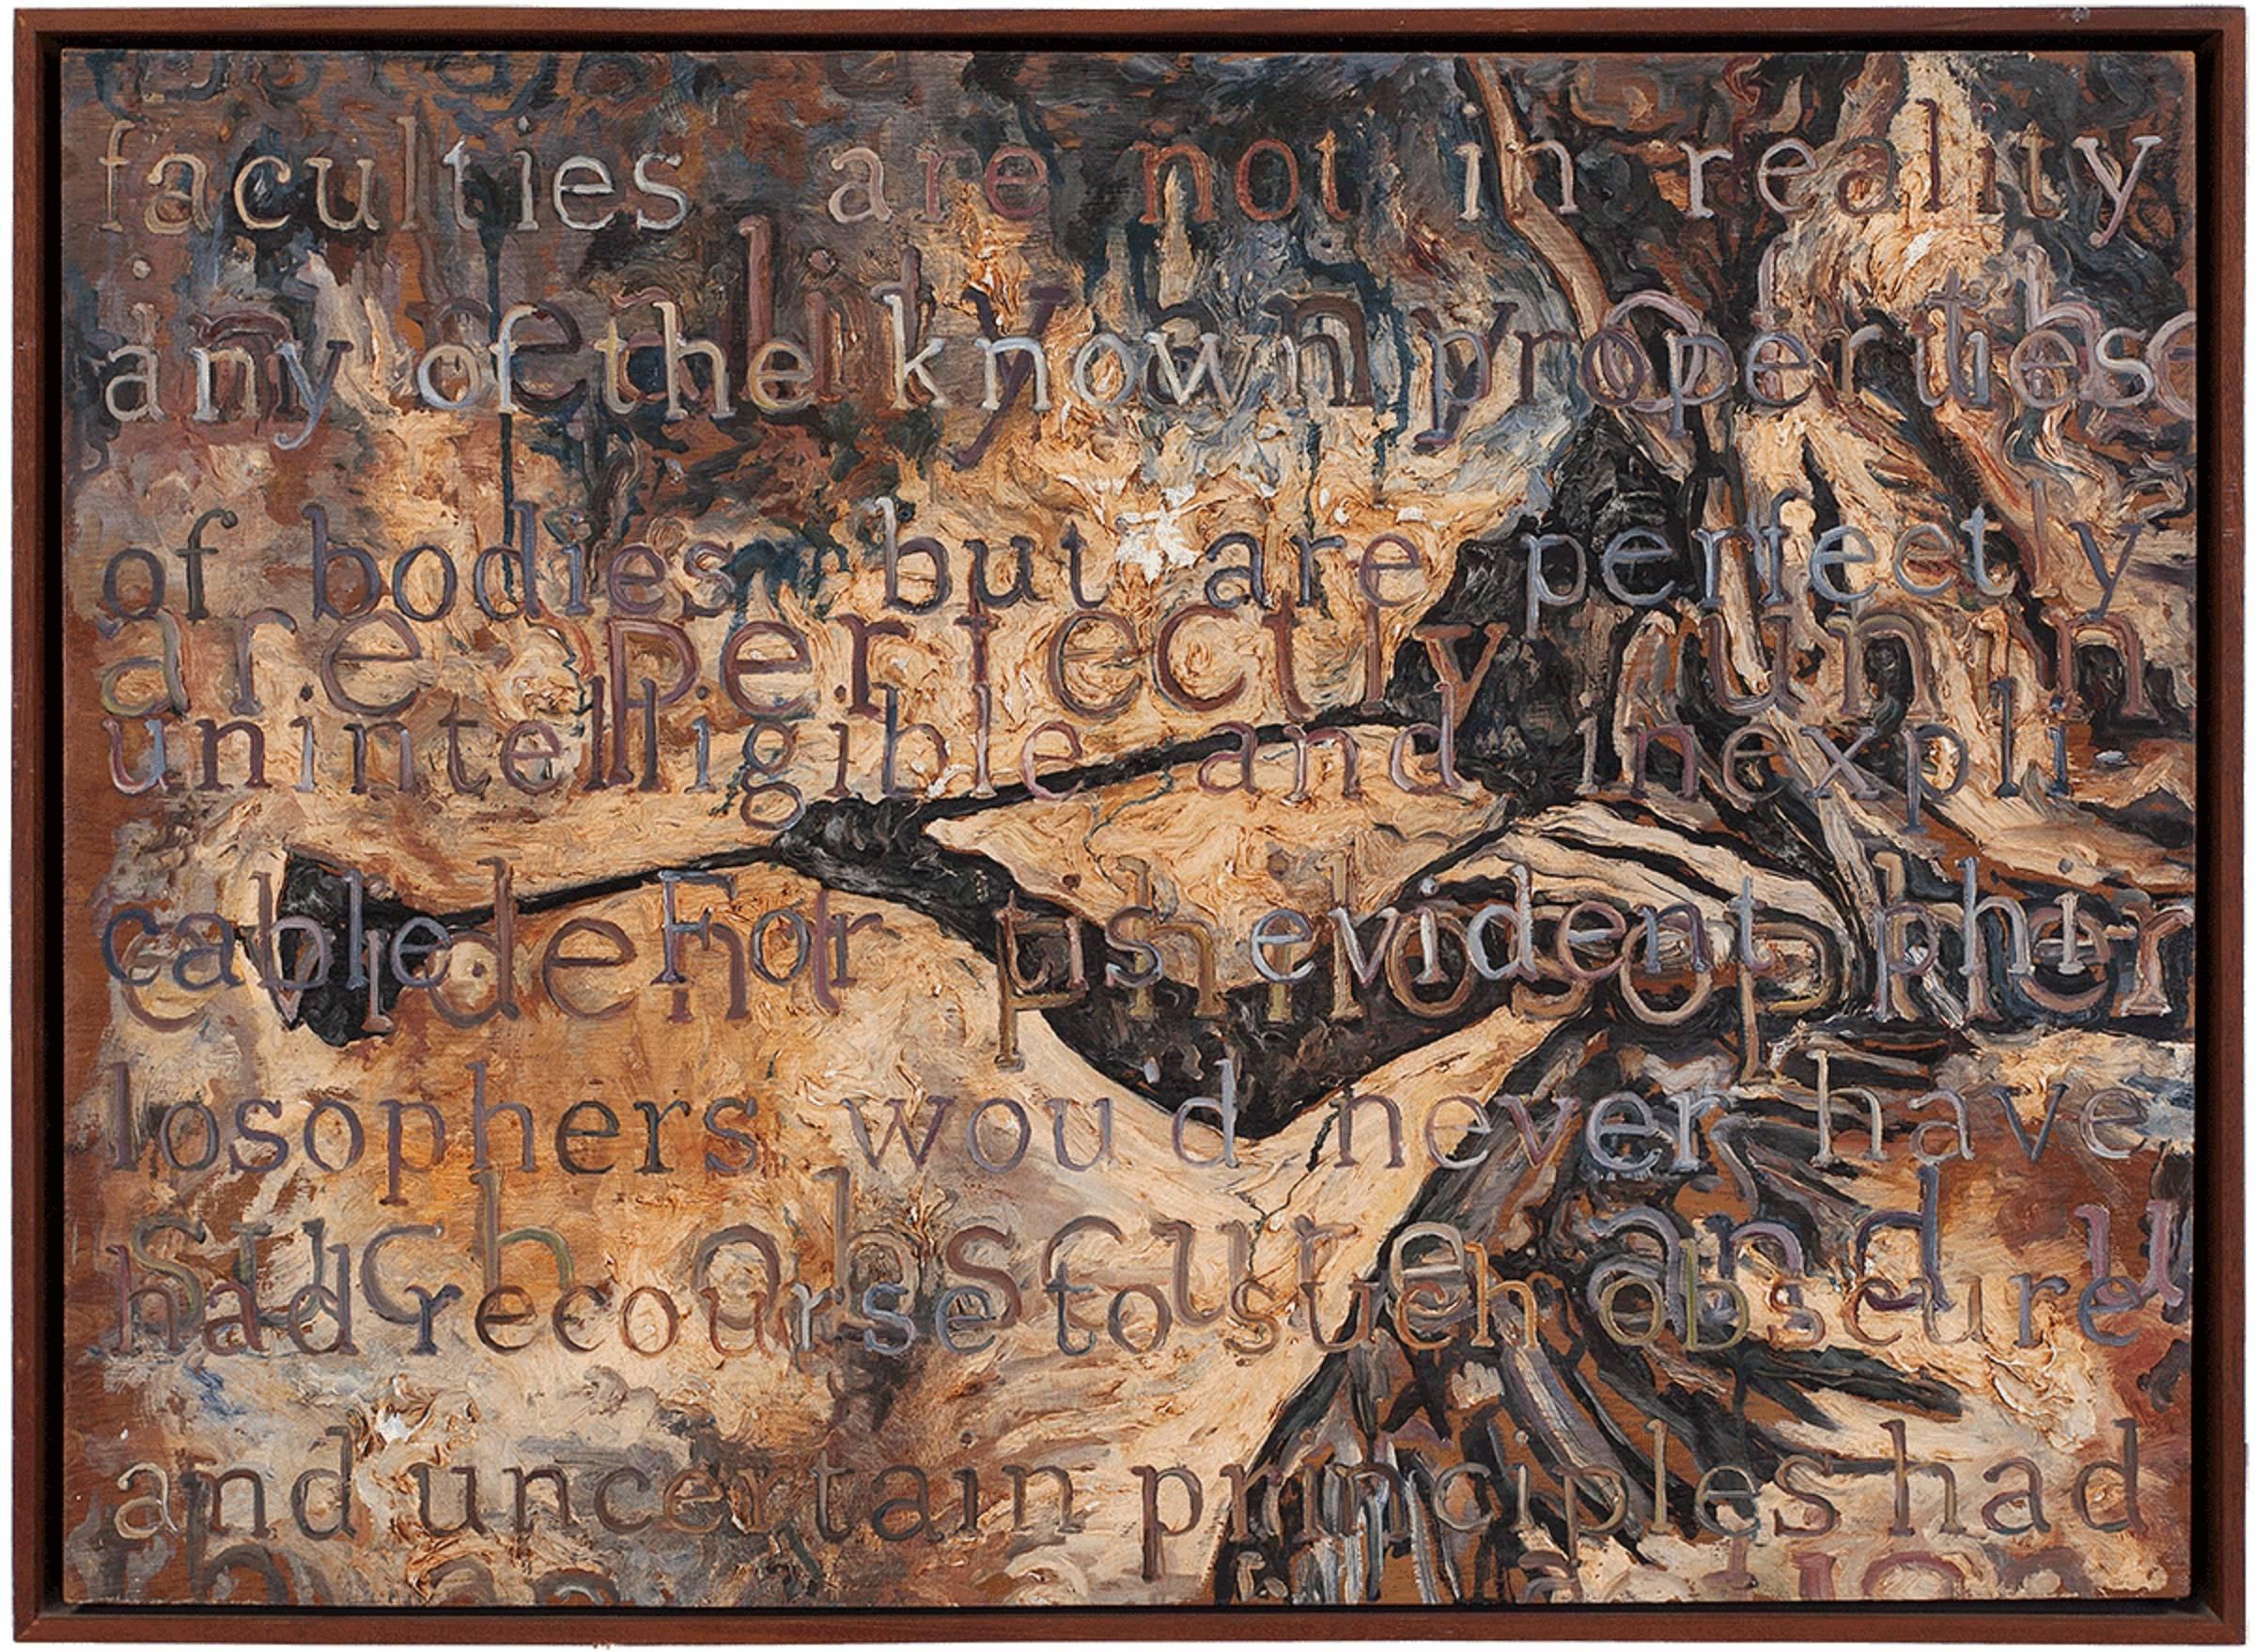 faculties are not in reality
reality
any of the known properties
of bodies but are perfectly
are perfectly unin
unintelligible and inexpli
cable For tis evident phi
evident philosopher
losophers would never have
such obscure and u
had recourse to such obscure
and uncertain principles had